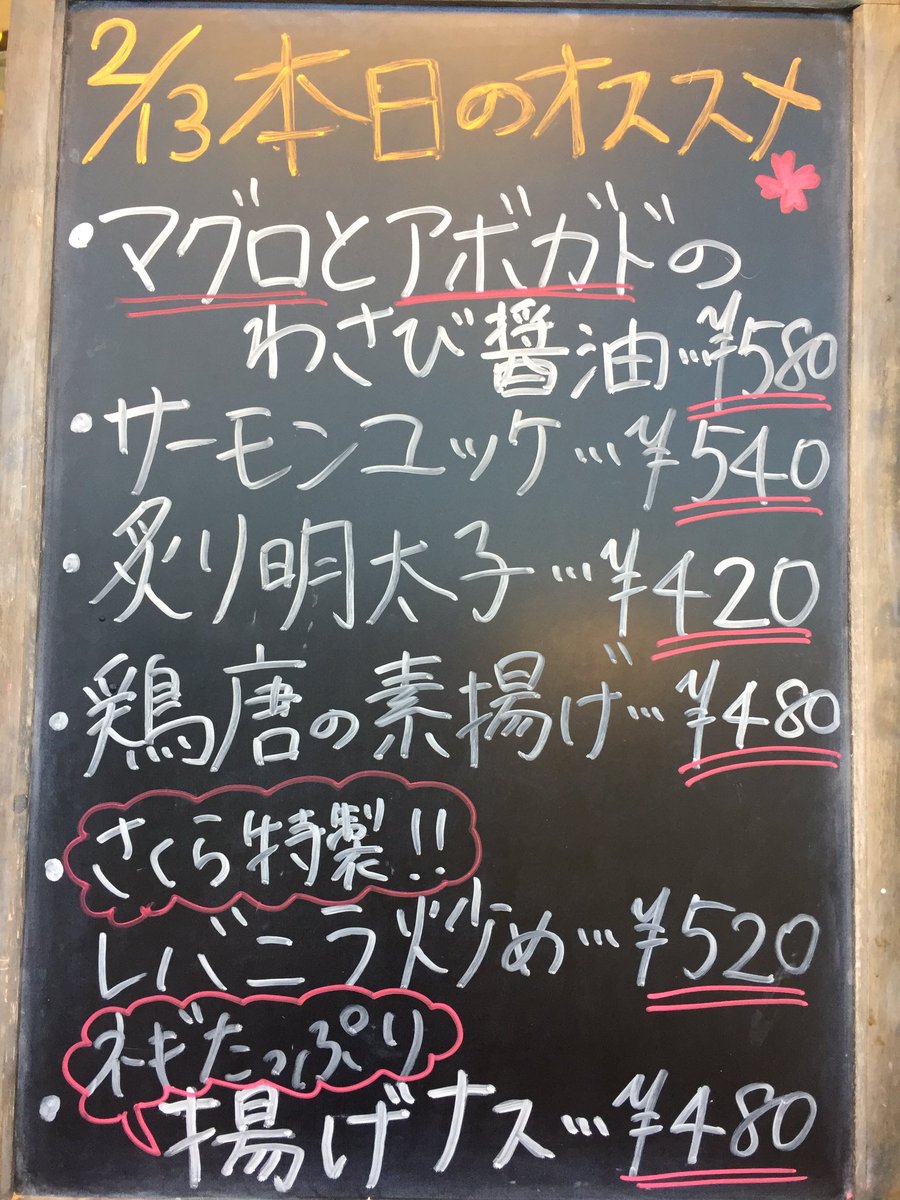 2/13本日のオススメ
・マグロとアボガドの
わさび醤油…¥580
・サーモンユッケ…¥540
・炙り明太子…¥420
・鶏唐の素揚げ…¥480
・さくら特製!!
レバニラ炒め…¥520
ネギたっぷり
・揚げナス…¥480